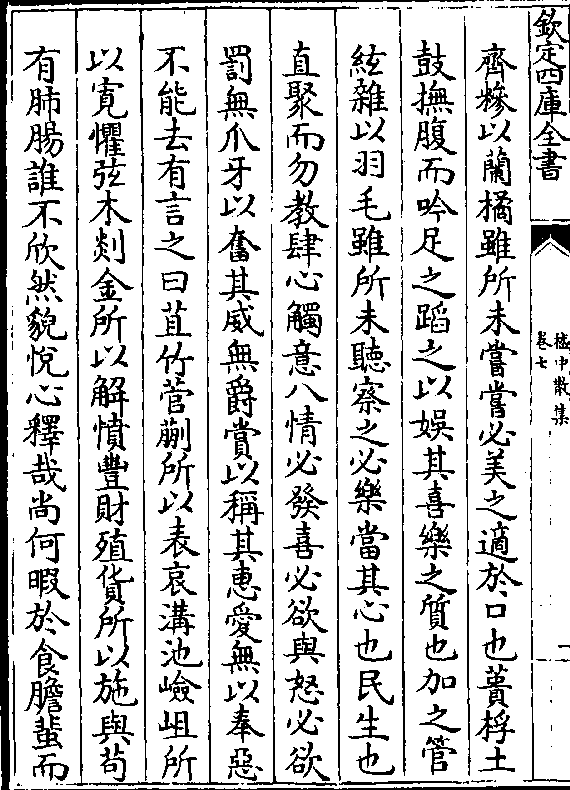 欽定四庫全書
嵇中散集
卷七
齊糝以蘭橘雖所未嘗嘗必美之適於口也蕢桴土
鼓撫腹而吟足之蹈之以娛其喜樂之質也加之管
絃雜以羽毛雖所未聽察之必樂當其心也民生也
直聚而勿教肆心觸意八情必發喜必欲與怒必欲
罰無爪牙以奮其威無爵賞以稱其惠愛無以奉惡
不能去有言之曰苴竹菅蒯所以表哀溝池嶮岨所
以寛懼弦木剡金所以解憤豐財殖貨所以施與茍
有肺腸誰不欣然貌悅心釋哉尚何暇於食膽蜚而